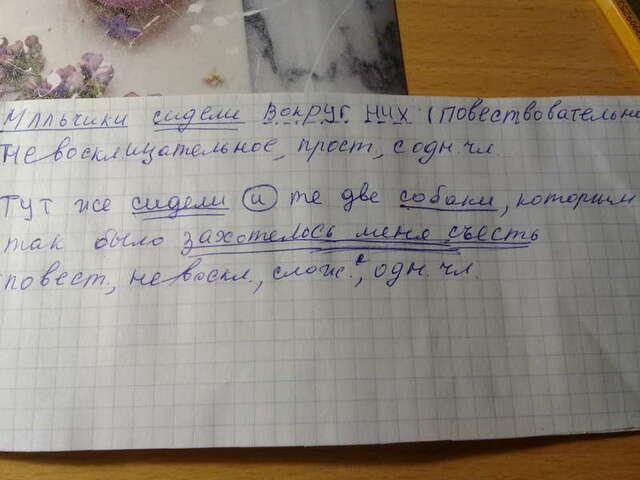 Мальчики сидели вокруг них (повествовательн
невосклицательное, прост, с одн. чл.
Тут же сидели и те две собаки, которым
так было захотелось меня съесть
повест, невоскл., слож., с одн. чл.